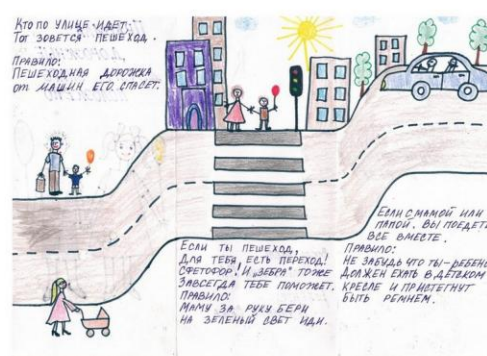 Кто по улице идет,
Тот зовется пешеход.
Правило:
Пешеходная дорожка
от машин его спасет.
Если ты пешеход,
Для тебя есть переход!
Сфетофор! И "зебра" тоже
Завсегда тебе поможет.
Правило:
Маму за руку бери
на зеленый свет иди.
Если с мамой или
папой. Вы поедете
все вместе.
Правило:
Не забудь что ты-ребенок
Должен ехать в детском
кресле и пристегнут
быть ремнем.